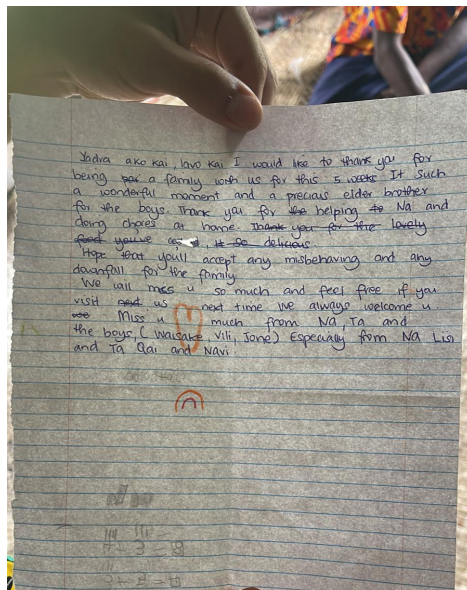 Yadra ako Kai, lavo Kai I would like to thank you for
being a family with us for this 5 weeks It such
a wonderful moment and a precious elder brother
for the boys. Thank you for the helping to Na and
doing chores at home. Thank you for the lovely
food youve it so delicious
Hope that youll accept any misbehaving and any
downfall for the family
We will miss u so much and feel free if you
visit us next time we always welcome u
Miss u much from Na, Ta and
the boys, (Waisake, Vili, Jone) Especially from Na Lisi
and Ta Qai and Navi